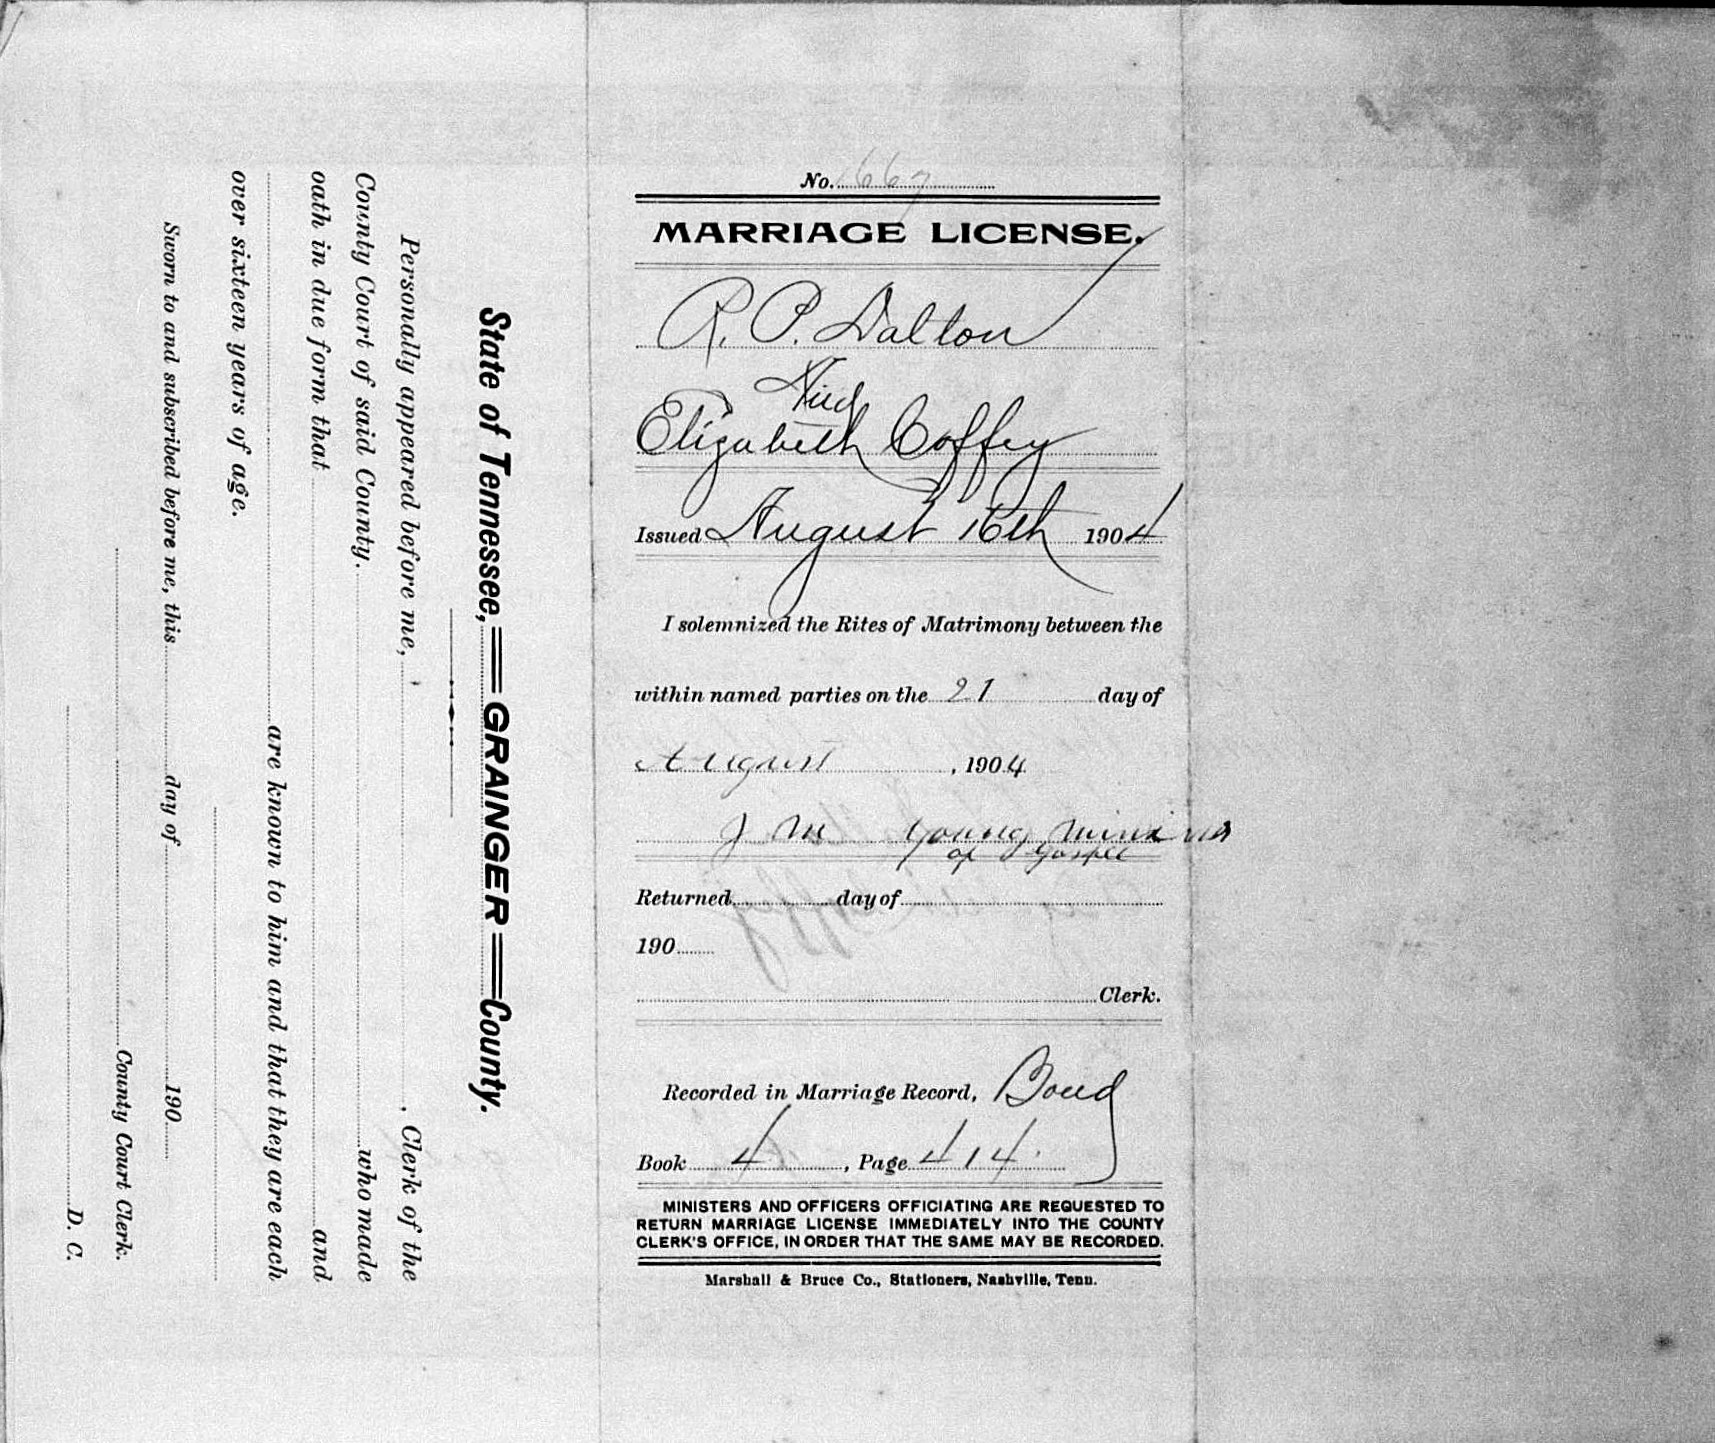 No. 667
MARRIAGE LICENSE.
R. P. Dalton
And
Elizabeth Coffey
Issued August 16th 1904
I solemnized the Rites of Matrimony between the
within named parties on the 21 day of
August, 1904
J M Young Minister
of Gospel
Returned day of
190
Clerk.
Recorded in Marriage Record, Bond
Book 4, Page 414.
MINISTERS AND OFFICERS OFFICIATING ARE REQUESTED TO
RETURN MARRIAGE LICENSE IMMEDIATELY INTO THE COUNTY
CLERK'S OFFICE, IN ORDER THAT THE SAME MAY BE RECORDED.
Marshall & Bruce Co., Stationers, Nashville, Tenn.
State of Tennessee, GRAINGER County.
Personally appeared before me, , Clerk of the
County Court of said County. who made
oath in due form that and
are known to him and that they are each
over sixteen years of age.
Sworn to and subscribed before me, this day of 190
County Court Clerk.
D. C.